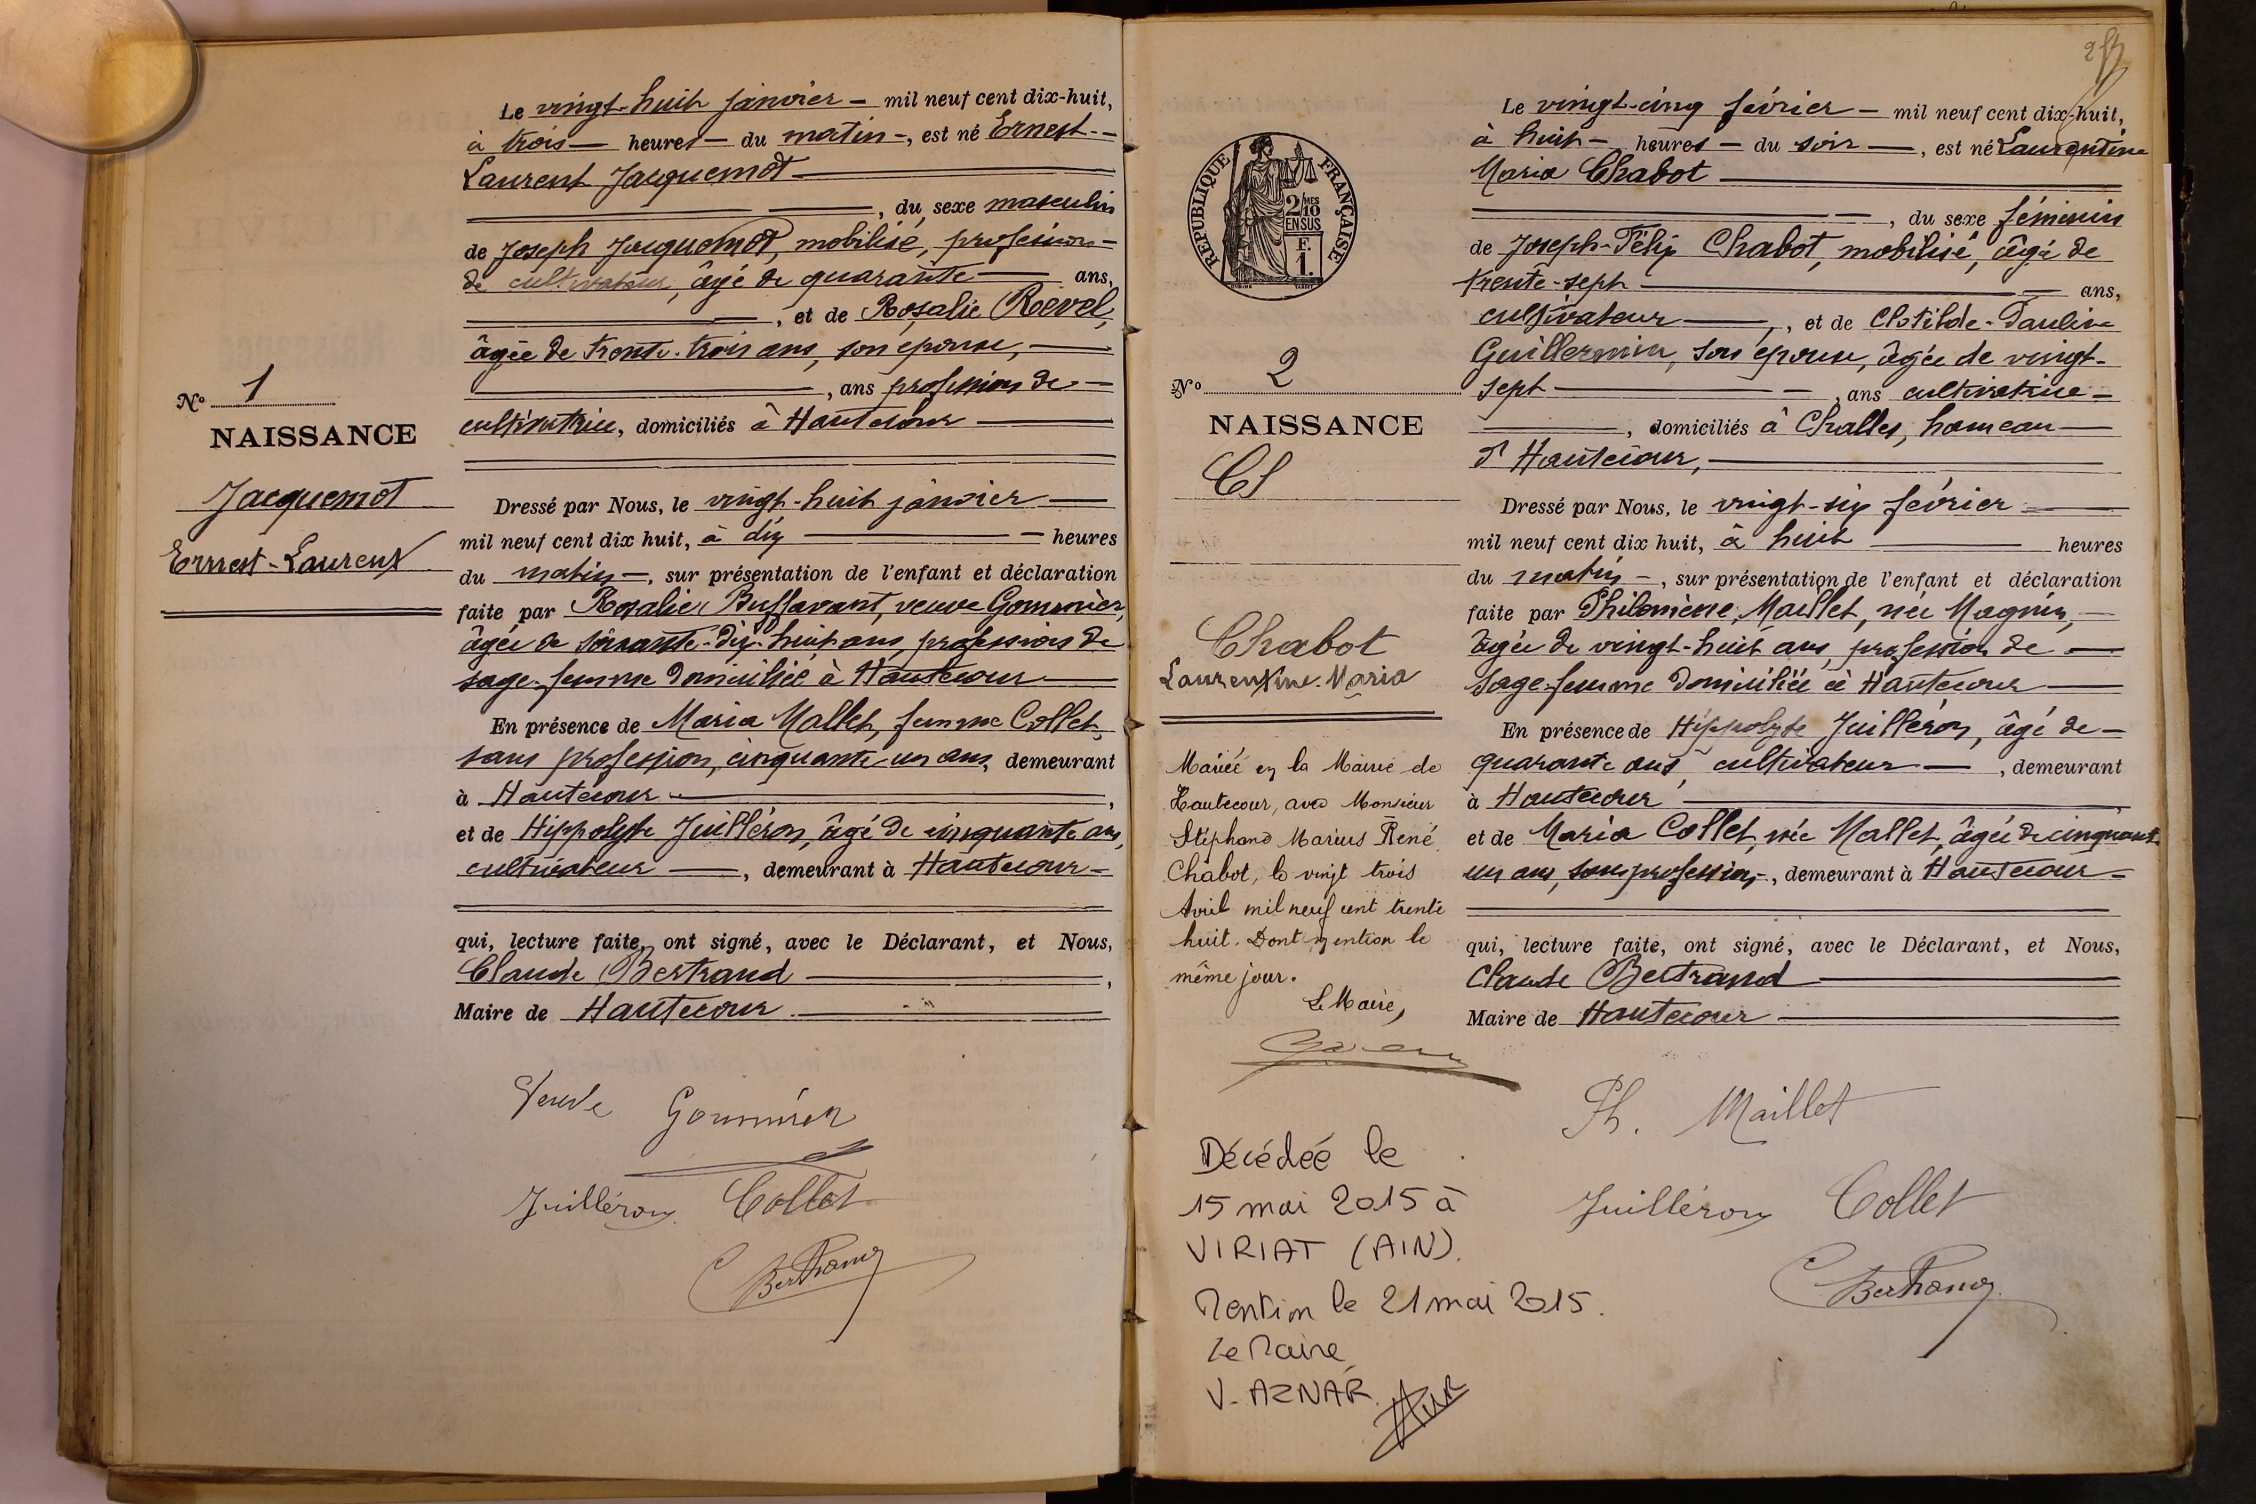 N° 1
NAISSANCE
Jacquemot
Ernest-Laurent
Le vingt-huit janvier — mil neuf cent dix-huit,
à trois — heures — du matin —, est né Ernest-
Laurent Jacquemot
, du sexe masculin
de Joseph Jacquemot, mobilisé, profession
de cultivateur, âgé de quarante — ans,
, et de Rosalie Revel,
âgée de trente-trois ans, son épouse, —
, ans profession de —
cultivatrice, domiciliés à Hautecour
Dressé par Nous, le vingt-huit janvier —
mil neuf cent dix huit, à dix — heures
du matin —, sur présentation de l'enfant et déclaration
faite par Rosalie Buffavant, veuve Gommier,
âgée de soixante-dix-huit ans, profession de
sage-femme domiciliée à Hautecour
En présence de Maria Mallet, femme Collet
sans profession, cinquante un ans, demeurant
à Hautecour —,
et de Hippolyte Juilléron, âgé de cinquante ans,
cultivateur —, demeurant à Hautecour —
qui, lecture faite, ont signé, avec le Déclarant, et Nous,
Claude Bertrand —,
Maire de Hautecour
Veuve Gommier
Juilléron Collet
C Bertrand
RÉPUBLIQUE FRANÇAISE
2/10 MES
EN SUS
F.
1.
N° 2
NAISSANCE
Chabot
Laurentine-Maria
Mariée en la Mairie de
Hautecour, avec Monsieur
Stéphane Marius René
Chabot, le vingt trois
Avril mil neuf cent trente
huit. Dont mention le
même jour.
Le Maire,
Décédée le
15 mai 2015 à
VIRIAT (AIN).
Mention le 21 mai 2015.
Le Maire
V. AZNAR
Le vingt-cinq février — mil neuf cent dix-huit,
à huit — heures — du soir —, est né Laurentine
Maria Chabot
, du sexe féminin
de Joseph-Félix Chabot, mobilisé, âgé de
trente-sept — ans,
cultivateur —, et de Clotilde-Pauline
Guillermin, son épouse, âgée de vingt-
sept — , ans cultivatrice —
, domiciliés à Challes, hameau —
d'Hautecour,
Dressé par Nous, le vingt-six février
mil neuf cent dix huit, à huit — heures
du matin —, sur présentation de l'enfant et déclaration
faite par Philomène Maillet, née Magnin, —
âgée de vingt-huit ans, profession de —
sage-femme domiciliée à Hautecour
En présence de Hippolyte Juilléron, âgé de —
quarante ans, cultivateur —, demeurant
à Hautecour
et de Maria Collet, née Mallet, âgée de cinquante
un ans, sans profession —, demeurant à Hautecour —
qui, lecture faite, ont signé, avec le Déclarant, et Nous,
Claude Bertrand
Maire de Hautecour
Ph. Maillet
Juilléron Collet
C Bertrand